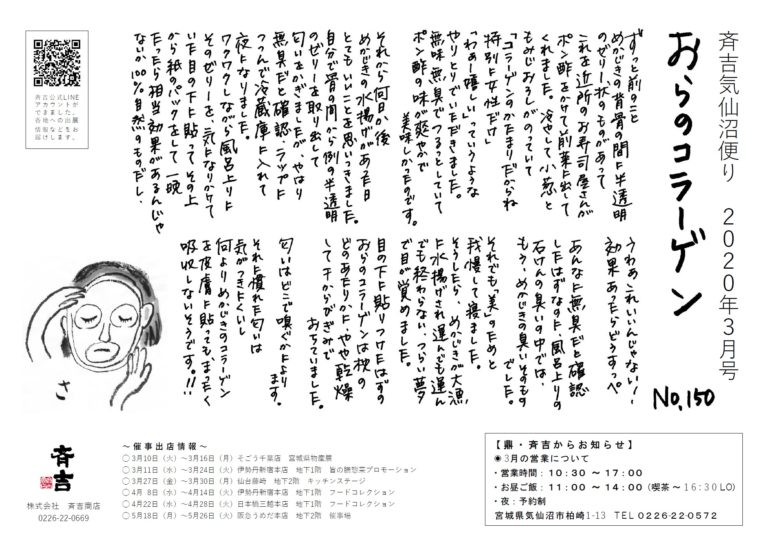 斉吉気仙沼便り　2020年3月号
おらのコラーゲン
No.150
ずっと前のこと
めかじきの背骨の間に半透明
のゼリー状のものがあって
これを近所のお寿司屋さんが
ポン酢をかけて前菜に出して
くれました。冷やして小葱と
もみじおろしがのっていて
「コラーゲンのかたまりだからね
特別に女性だけ」
「わぁー嬉しい」っていうような
やりとりでいただきました。
無味無臭でつるっとしていて
ポン酢の味が爽やかで
美味しかったのです。
それから何日か後
めかじきの水揚げがあった日
とてもいいことを思いつきました。
自分で骨の間から例の半透明
のゼリーを取り出して
匂いをかぎましたが、やはり
無臭だと確認、ラップに
つつんで冷蔵庫に入れて
夜になりました。
ワクワクしながら風呂上りに
そのゼリーを、気になりかけて
いた目の下に貼って、その上
から紙のパックをして一晩
たったら相当効果があるんじゃ
ないか100%自然のものだし、
うわぁこれいいんじゃない！
効果あったらどうすっぺ。
あんなに無臭だと確認
したはずなのに、風呂上りの
石けんの臭いの中では、
もう、めかじきの臭いそのもの
でした。
それでも「美」のためと
我慢して寝ました。
そうしたら、めかじきが大漁
に水揚げされ運んでも運ん
でも終わらない、つらい夢
で目が覚めました。
目の下に貼りつけたはずの
おらのコラーゲンは枕の
どのあたりかに、やや乾燥
して千からびぎみで
おちていました。
匂いはどこで嗅ぐかにより
ます。
それに慣れた匂いは
気がつきにくいし
何よりめかじきのコラーゲン
を皮膚に貼ってもまったく
吸収しないそうです。!!
さ
斉吉公式LINE
アカウントが
できました。
各地への出展
情報などをお
届けします。
斉吉
株式会社　斉吉商店
0226-22-0669
～催事出店情報～
○3月10日（火）～3月16日（月）そごう千葉店　宮城県物産展
○3月11日（水）～3月24日（火）伊勢丹新宿本店　地下1階　旨の膳惣菜プロモーション
○3月27日（金）～3月30日（月）仙台藤崎　地下2階　キッチンステージ
○4月 8日（水）～4月14日（火）伊勢丹新宿本店　地下1階　フードコレクション
○4月22日（水）～4月28日（火）日本橋三越本店　地下1階　フードコレクション
○5月18日（月）～5月26日（火）阪急うめだ本店　地下2階　催事場
【鼎・斉吉からお知らせ】
◉3月の営業について
・営業時間：10:30 ～ 17:00
・お昼ご飯：11:00 ～ 14:00（喫茶 ～16:30LO）
・夜：予約制
宮城県気仙沼市柏崎1-13　TEL 0226-22-0572